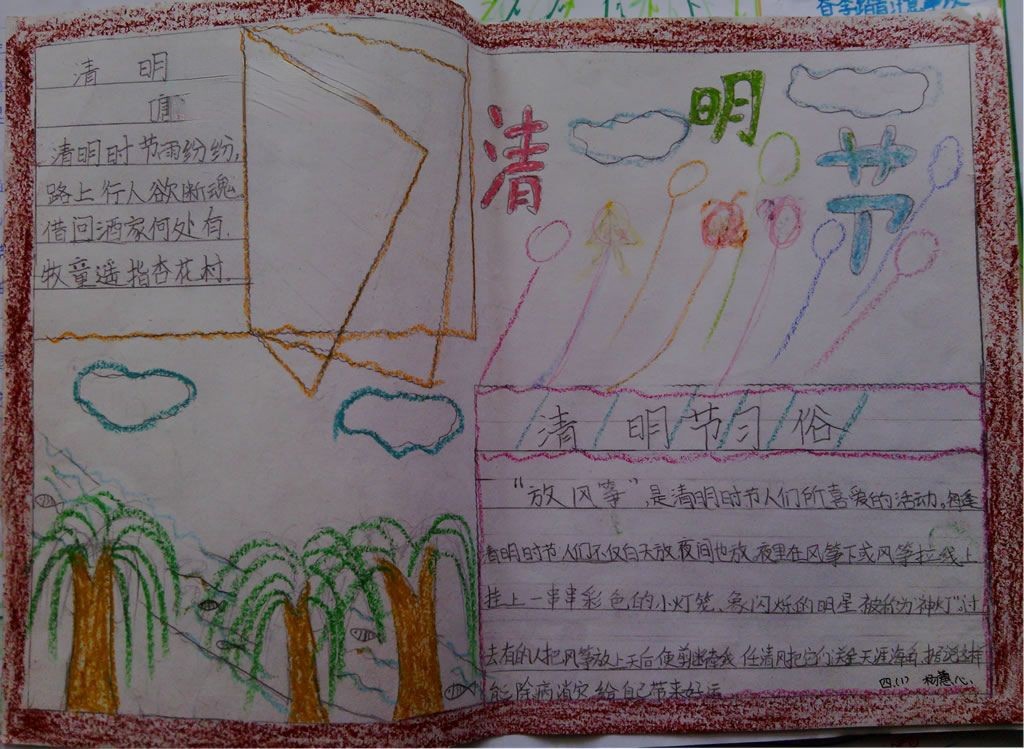 清 明
唐
清明时节雨纷纷,
路上行人欲断魂.
借问酒家何处有.
牧童遥指杏花村.
清 明 节
清明节习俗
“放风筝”是清明时节人们所喜爱的活动。每逢
清明时节人们不仅白天放夜间也放.夜里在风筝下或风筝拉线上
挂上一串串彩色的小灯笼.象闪烁的明星被称为“神灯”.过
去有的人把风筝放上天后便剪断牵线.任清风把它们送往天涯海角.据说这样
能除病消灾给自己带来好运
四.(1) 杨慧心.